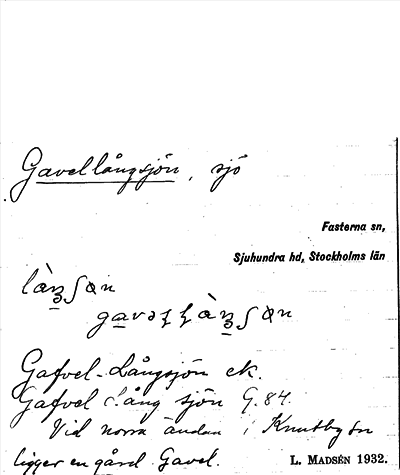 Gavellångsjön, sjö
Fasterna sn,
Sjuhundra hd, Stockholms län
Gafvel-Långsjön ek.
Gafvel Lång sjön G. 84.
Vid norra ändan i Knutby sn
ligger en gård Gavel.
L. MADSÉN 1932.